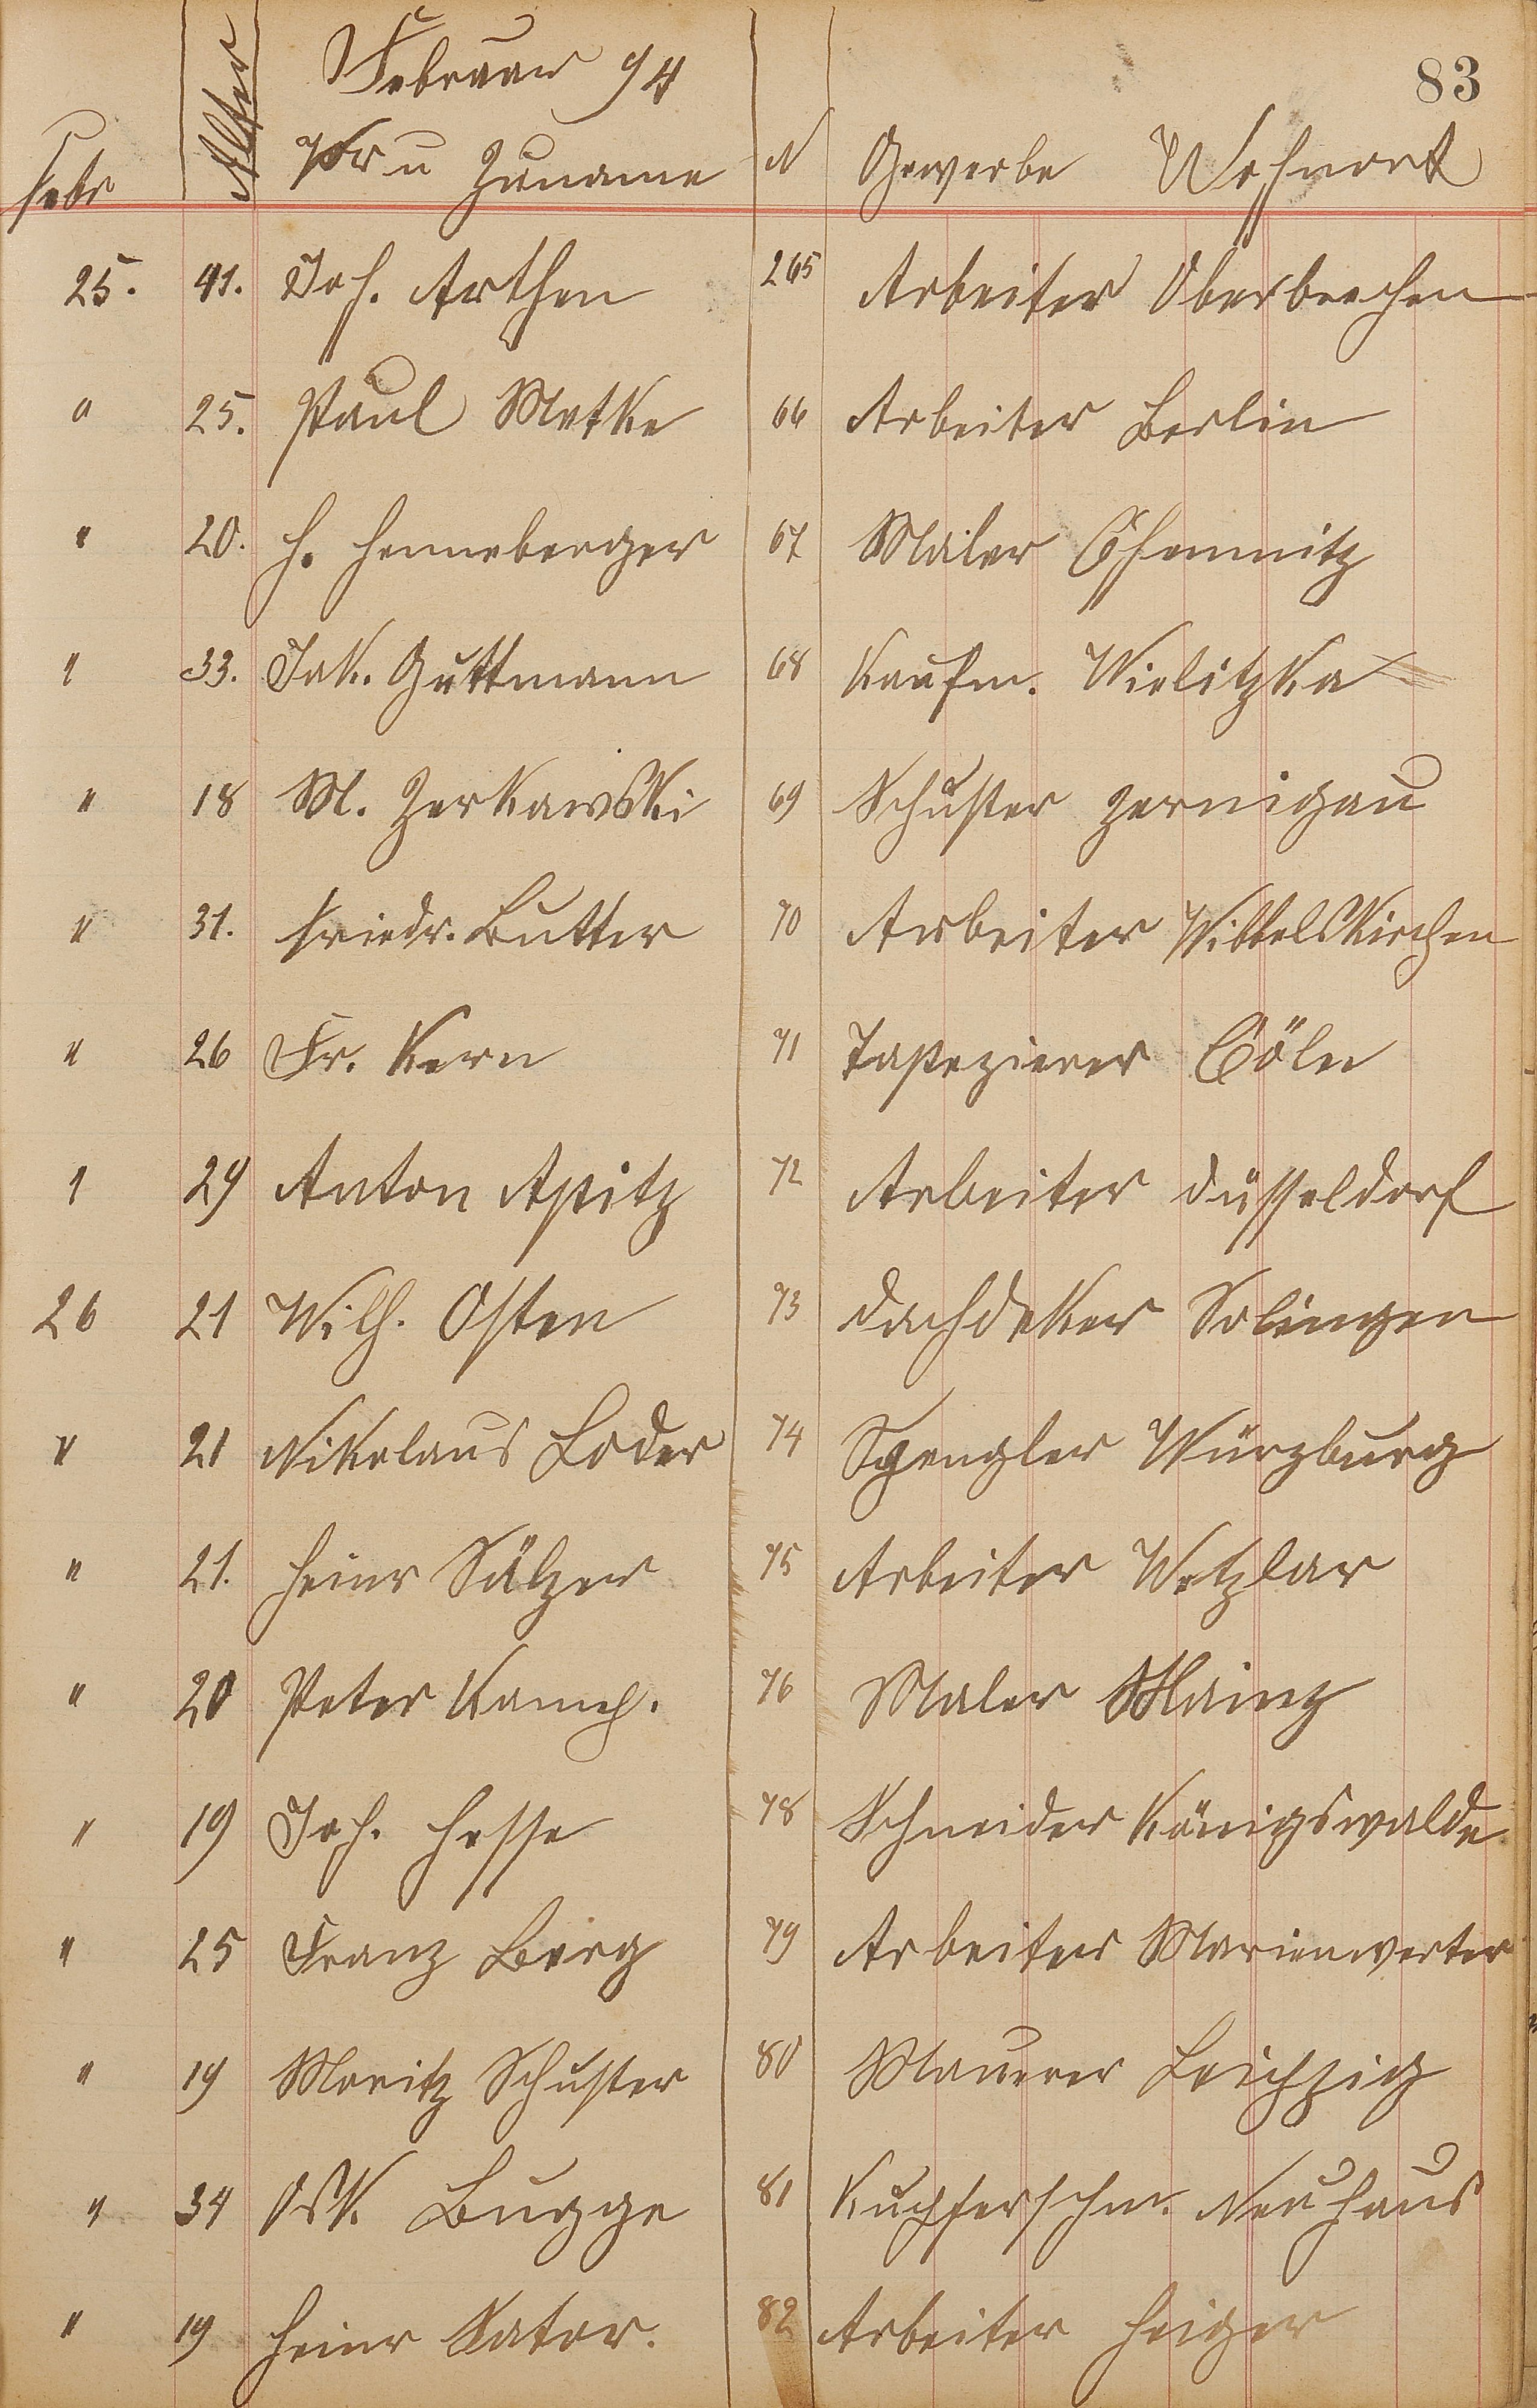 Februar 94
83
Febr Alter Vor u Zuname N Gewerbe Wohnort
25. 41. Joh. Arthen 265 Arbeiter Oberbrechen
" 25. Paul Metke 66 Arbeiter Berlin
" 20. H. Henneberger 67 Maler Chemnitz
" 33. Jak. Guttmann 68 Kaufm. Wielitzka
" 18 M. Zerkawski 69 Schuster Zernigau
" 31. Friedr. Butter 70 Arbeiter Wittelskirchen
" 26 Fr. Kern 71 Tapezierer Cöln
" 29 Anton Apitz 72 Arbeiter Düsseldorf
26 21 Wilh. Osten 73 Dachdeker Solingen
" 21 Nikolaus Loder 74 Spengler Würzburg
" 21. Heinr Sälzer 75 Arbeiter Wetzlar
" 20 Peter Kamp. 76 Maler Mainz
" 19 Joh. Hesse 78 Schneider Königswalde
" 25 Franz Berg 79 Arbeiter Marienwerter
" 19 Moritz Schuster 80 Maurer Leipzig
" 34 Osk. Bugge 81 Kupferschm. Neuhaus
" 19 Heinr Sator. 82 Arbeiter Heiger